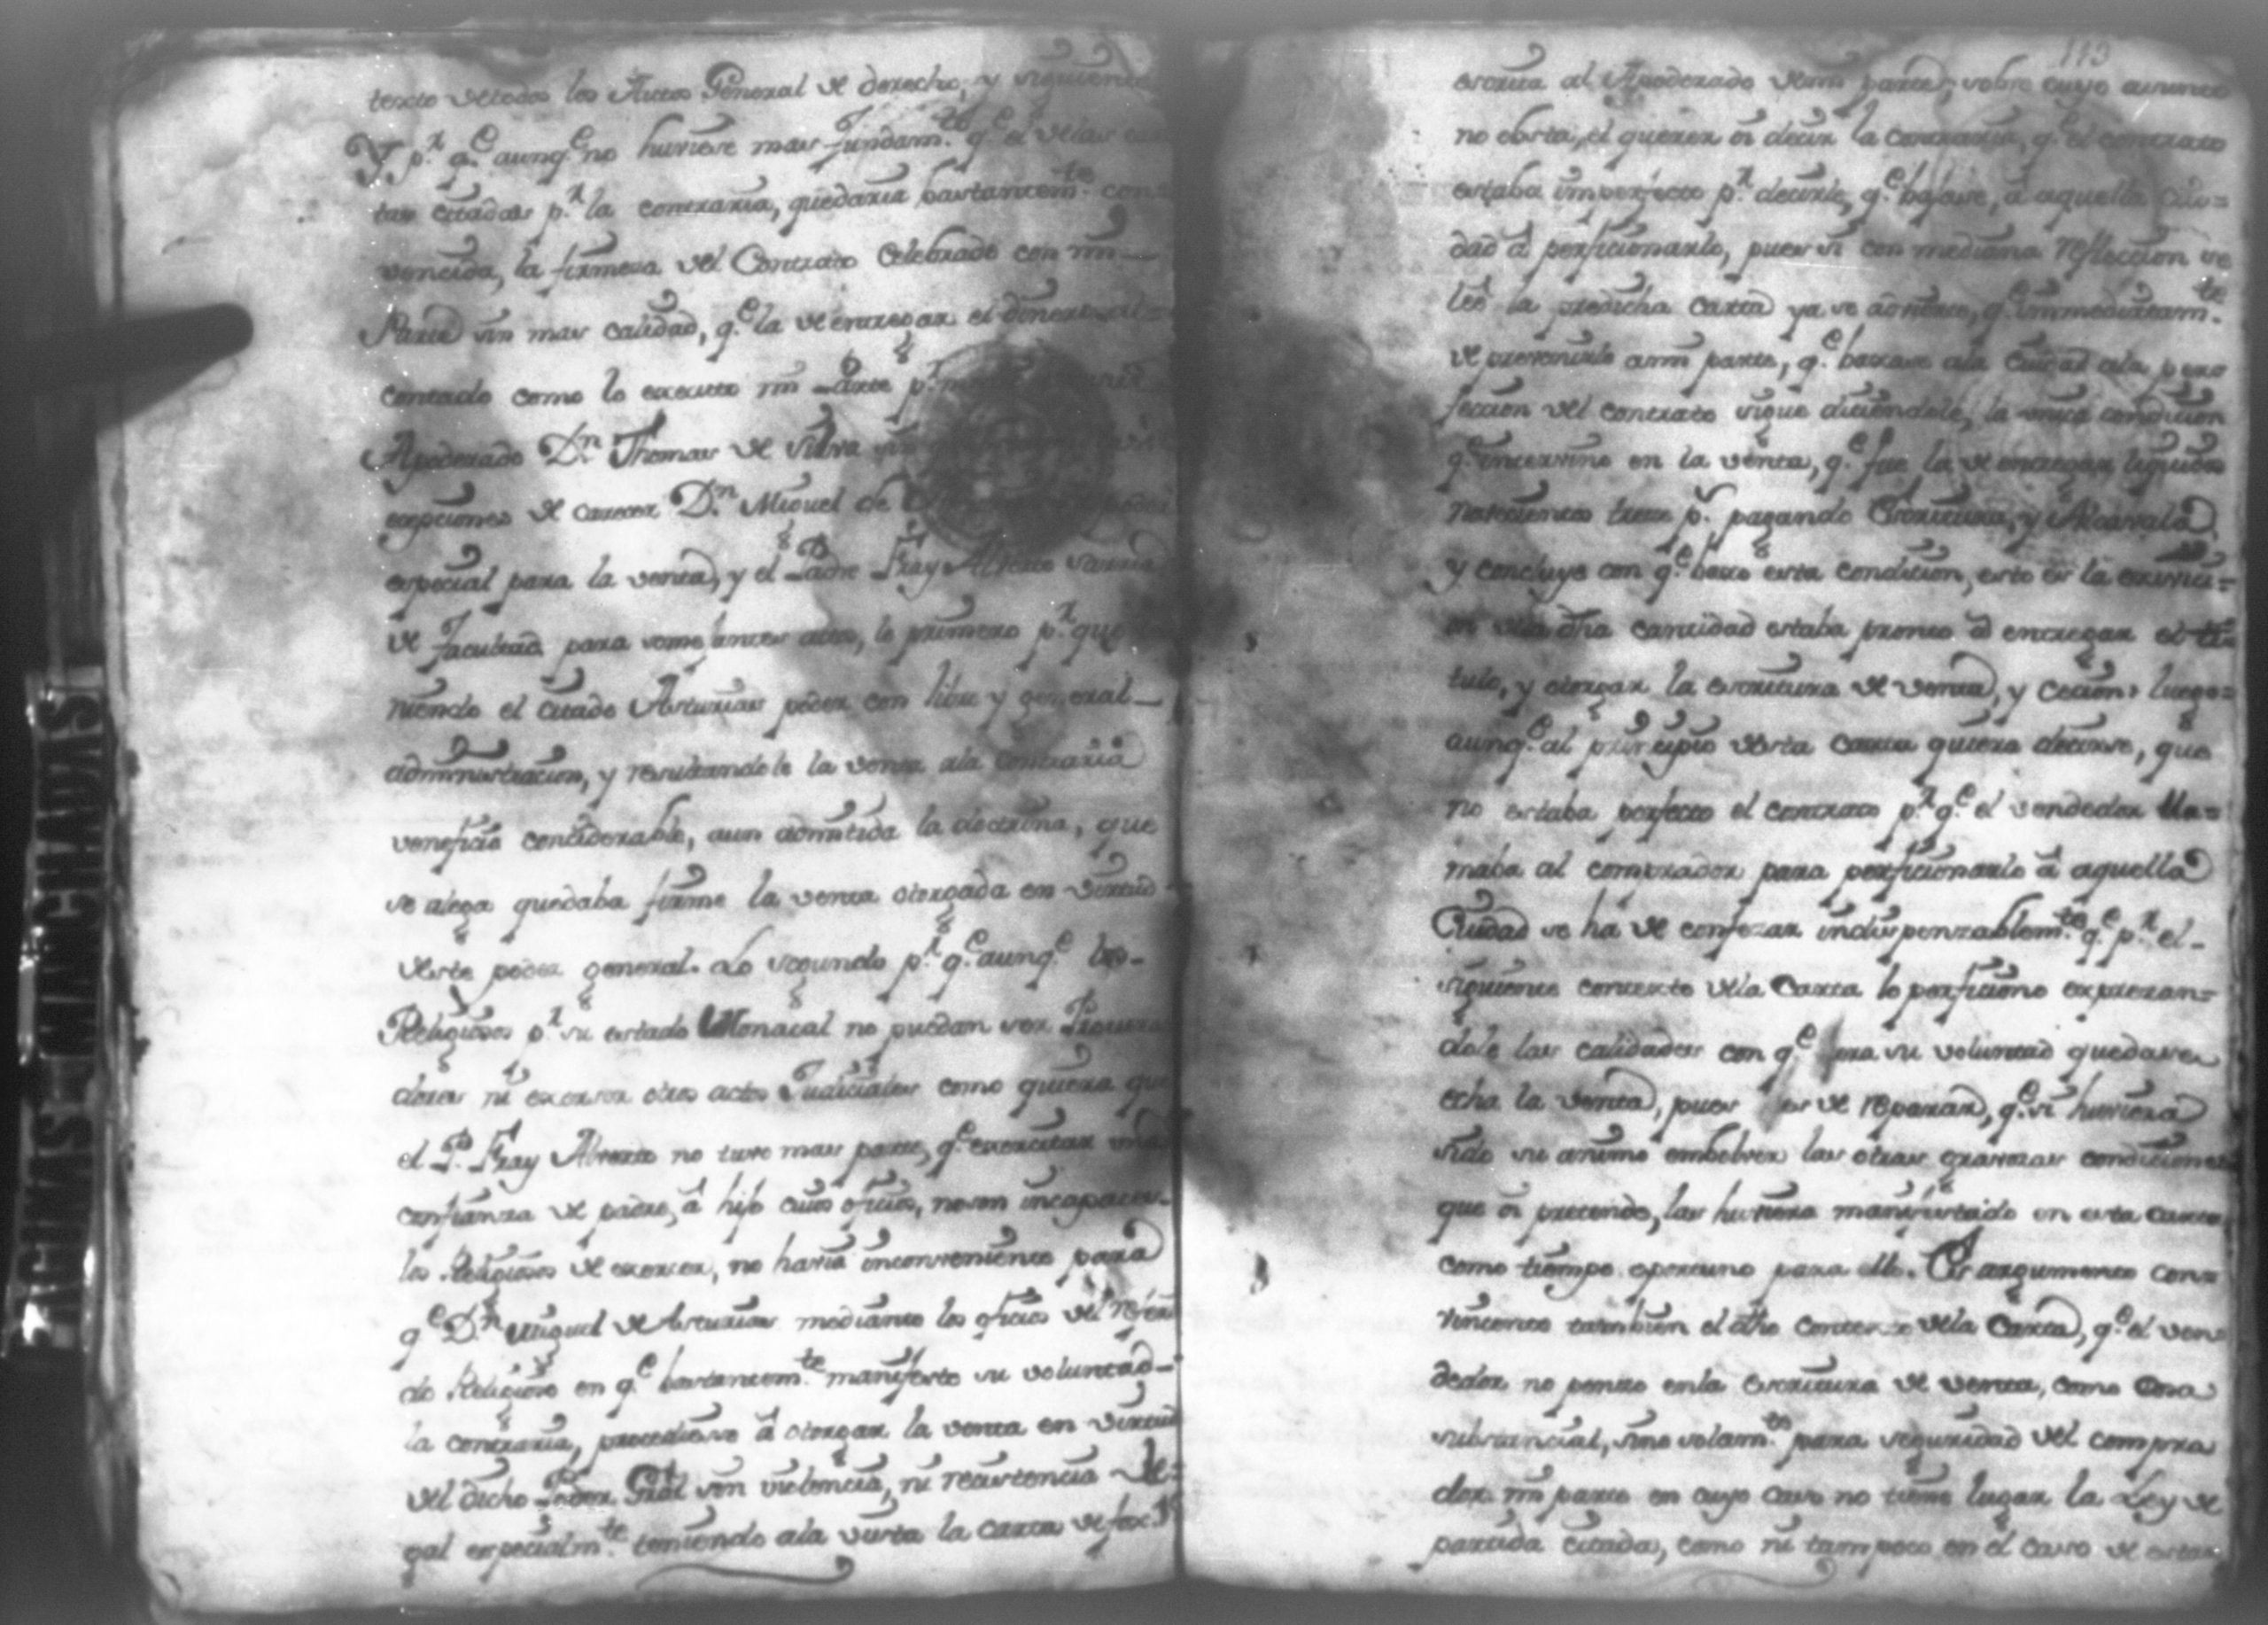 texto de todos los Autos General de derecho, y siguiente
Y p.r q.e aunq.e no huviese mas fundam.to q.e el de las car
tas citadas p.r la contraria, quedaria bastantem.te con=
vencida, la firmeza del Contrato Celebrado con mi
Parte sin mas calidad, q.e la de entregar el dinero al
contado como lo executo mi Parte p.r
Apoderado D.n Thomas de Silva
ecepciones de carecer D.n Miguel de
especial para la venta, y el Padre Fray Alberto
de facultad para semejantes actos, lo primero p.r que
niendo el citado Asturias poder con libre y general
administracion, y resultandole la venta ala contraria
veneficio considerable, aun admitida la doctrina, que
se alega quedaba firme la venta otorgada en virtud
deste poder general. Lo segundo p.r q.e aunq.e los
Religiosos p.r su estado Monacal no puedan ser Procura
dores ni exerser otros actos Judiciales como quiera que
el P. Fray Alberto no tuvo mas parte, q.e exercitar una
confianza de padre, á hijo cuios oficios, no son incapaces
los Religiosos de exercer, no havia inconveniente para
q.e D.n Miguel de Asturias mediante los oficios del referi
do Religioso en q.e bastantem.te manifesto su voluntad
la contraria, procediese á otorgar la venta en virtud
del dicho Poder Gral sin violencia, ni resistencia le=
gal especialm.te teniendo ala vista la carta de fox.s
113
escrita al Apoderado de mi parte, sobre cuyo asunto
no obsta, el querer oi decir la contraria, q.e el contrato
estaba imperfecto p.r decirle, q.e bajase, á aquella Ciu=
dad á perficionarlo, pues si con mediana reflección se
lee la predicha carta ya se advierte, q.e immediatam.te
de prevenirle a mi parte, q.e baxase ala Ciudad ala per
fección del contrato sigue diciendole, la unica condicion
q.e intervino en la venta, q.e fue la de entregar liquidos
nosecientos trece p.s pagando Escritura, y Alcavala
y concluye con q.e baxo esta condicion, esto es la exivici=
on dela dha cantidad estaba pronto á entregar el ti=
tulo, y otorgar la escritura de venta, y Cecion: luego=
aunq.e al principio desta carta quiera decirse, que
no estaba perfecto el contrato p.r q.e el vendedor lla=
maba al comprador para perficionarlo á aquella
Ciudad se ha de confezar indispenzablem.te q.e p.r el
siguiente contexto dela Carta lo perficiono exprezan=
dole las calidades con q.e era su voluntad quedase
echa la venta, pues es de reparar, q.e si huviera
sido su animo embolver las otras gravozas condiciones
que oi pretende, las huviera manifestado en esta carta
como tiempo oportuno para ello. Es argumento con=
vincente tambien el dho contexto dela Carta, q.e el ven
dedor no penso en la escritura de venta, como cosa
substancial, sino solam.te para seguridad del compra
dor mi parte en cuyo caso no tiene lugar la Ley de
partida citada, como ni tampoco en el caso de estar
PAGINAS MANCHADAS